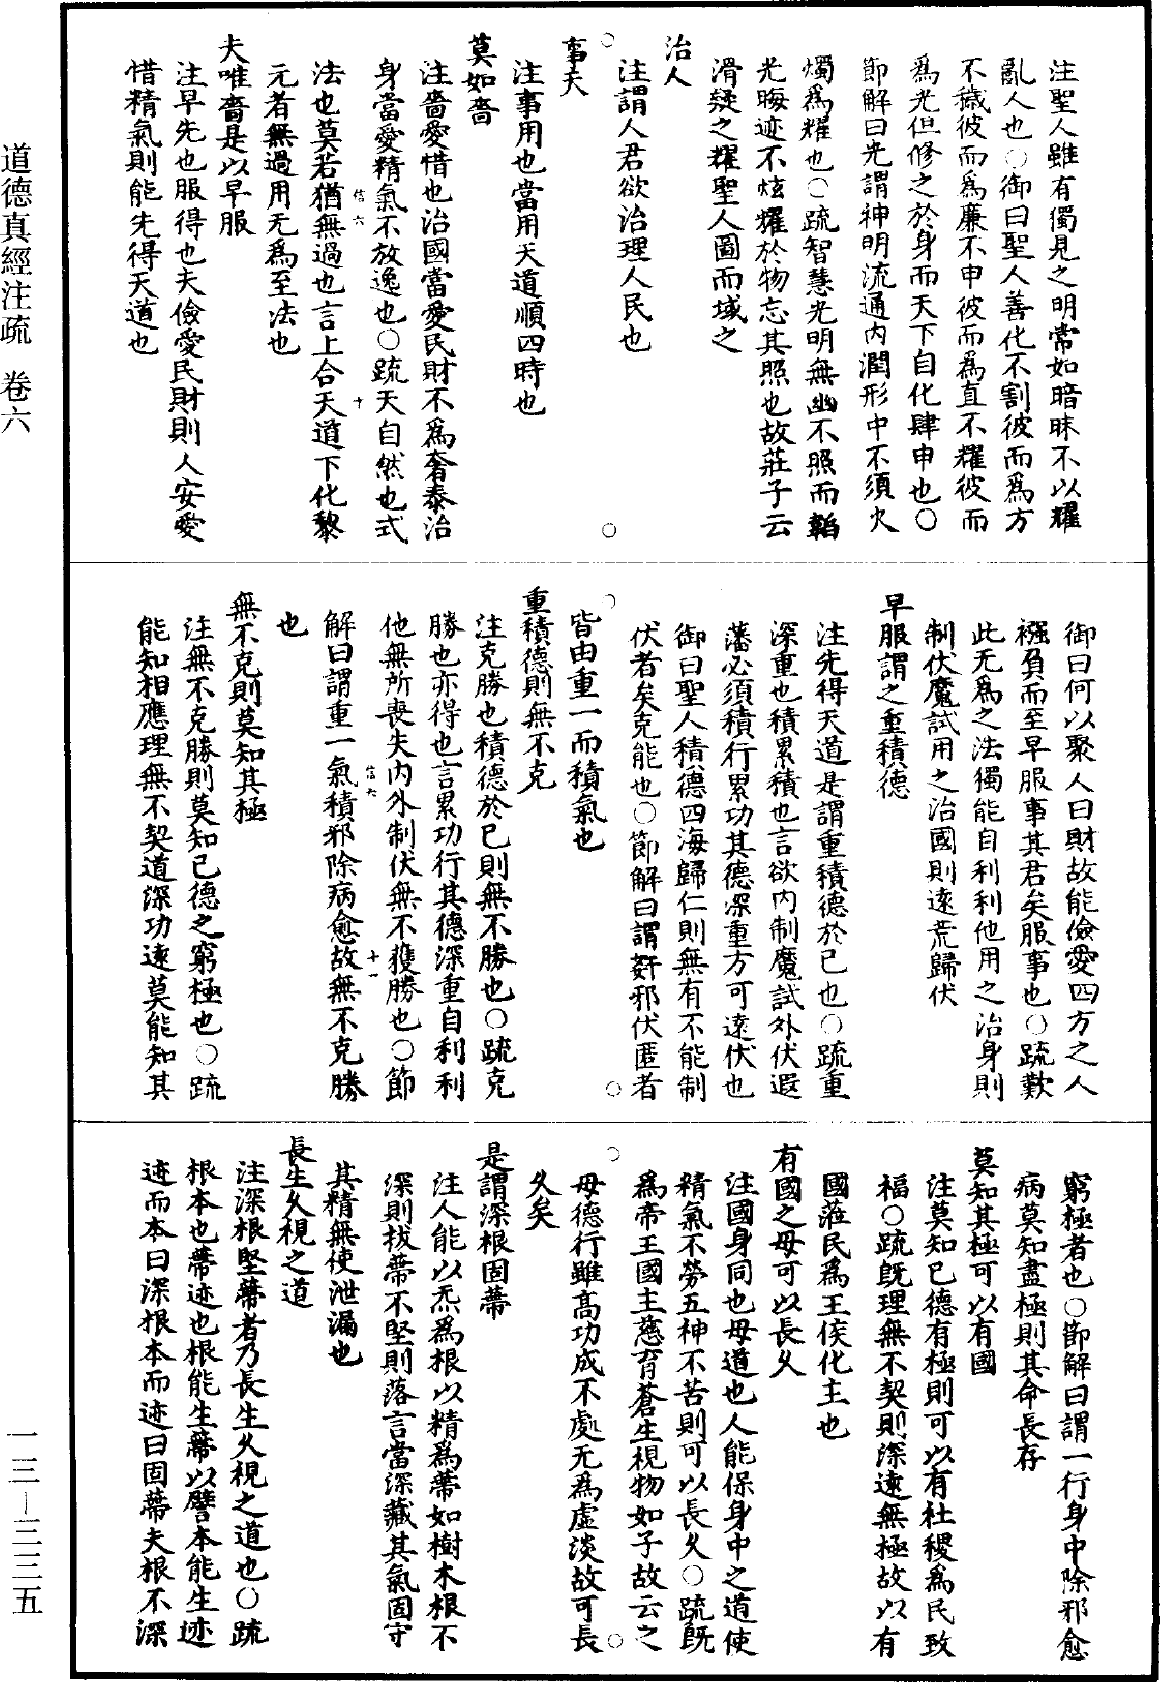 道德真經注疏　卷六
注聖人雖有獨見之明常如暗昧不以耀
亂人也○御曰聖人善化不割彼而爲方
不穢彼而爲廉不申彼而爲直不耀彼而
爲光但修之於身而天下自化肆申也○
節解曰光謂神明流通內潤形中不須火
燭爲耀也○疏智慧光明無幽不照而韜
光晦迹不炫耀於物忘其照也故莊子云
滑疑之耀聖人圖而域之
治人
注謂人君欲治理人民也
事天
注事用也當用天道順四時也
莫如嗇
注嗇愛惜也治國當愛民財不爲奢泰治
身當愛精氣不放逸也○疏天自然也式
信六　十
法也莫若猶無過也言上合天道下化黎
元者無過用无爲至法也
夫唯嗇是以早服
注早先也服得也夫儉愛民財則人安愛
惜精氣則能先得天道也
御曰何以聚人曰財故能儉愛四方之人
襁負而至早服事其君矣服事也○疏歎
此无爲之法獨能自利利他用之治身則
制伏魔試用之治國則遠荒歸伏
早服謂之重積德
注先得天道是謂重積德於己也○疏重
深重也積累積也言欲內制魔試外伏遐
藩必須積行累功其德深重方可遠伏也
御曰聖人積德四海歸仁則無有不能制
伏者矣克能也○節解曰謂姧邪伏匿者
皆由重一而積氣也
重積德則無不克
注克勝也積德於己則無不勝也○疏克
勝也亦得也言累功行其德深重自利利
他無所喪失內外制伏無不獲勝也○節
信六　十一
解曰謂重一氣積邪除病愈故無不克勝
也
無不克則莫知其極
注無不克勝則莫知己德之窮極也○疏
能知相應理無不契道深功遠莫能知其
窮極者也○節解曰謂一行身中除邪愈
病莫知盡極則其命長存
莫知其極可以有國
注莫知己德有極則可以有社稷爲民致
福○疏旣理無不契則深遠無極故以有
國莅民爲王侯化主也
有國之母可以長久
注國身同也母道也人能保身中之道使
精氣不勞五神不苦則可以長久○疏旣
爲帝王國主慈育蒼生視物如子故云之
母德行雖高功成不處无爲虛淡故可長
久矣
是謂深根固蔕
注人能以炁爲根以精爲蔕如樹木根不
深則拔蔕不堅則落言當深藏其氣固守
其精無使泄漏也
長生久視之道
注深根堅蔕者乃長生久視之道也○疏
根本也蔕迹也根能生蔕以譬本能生迹
迹而本曰深根本而迹曰固蔕夫根不深
一三—三三五